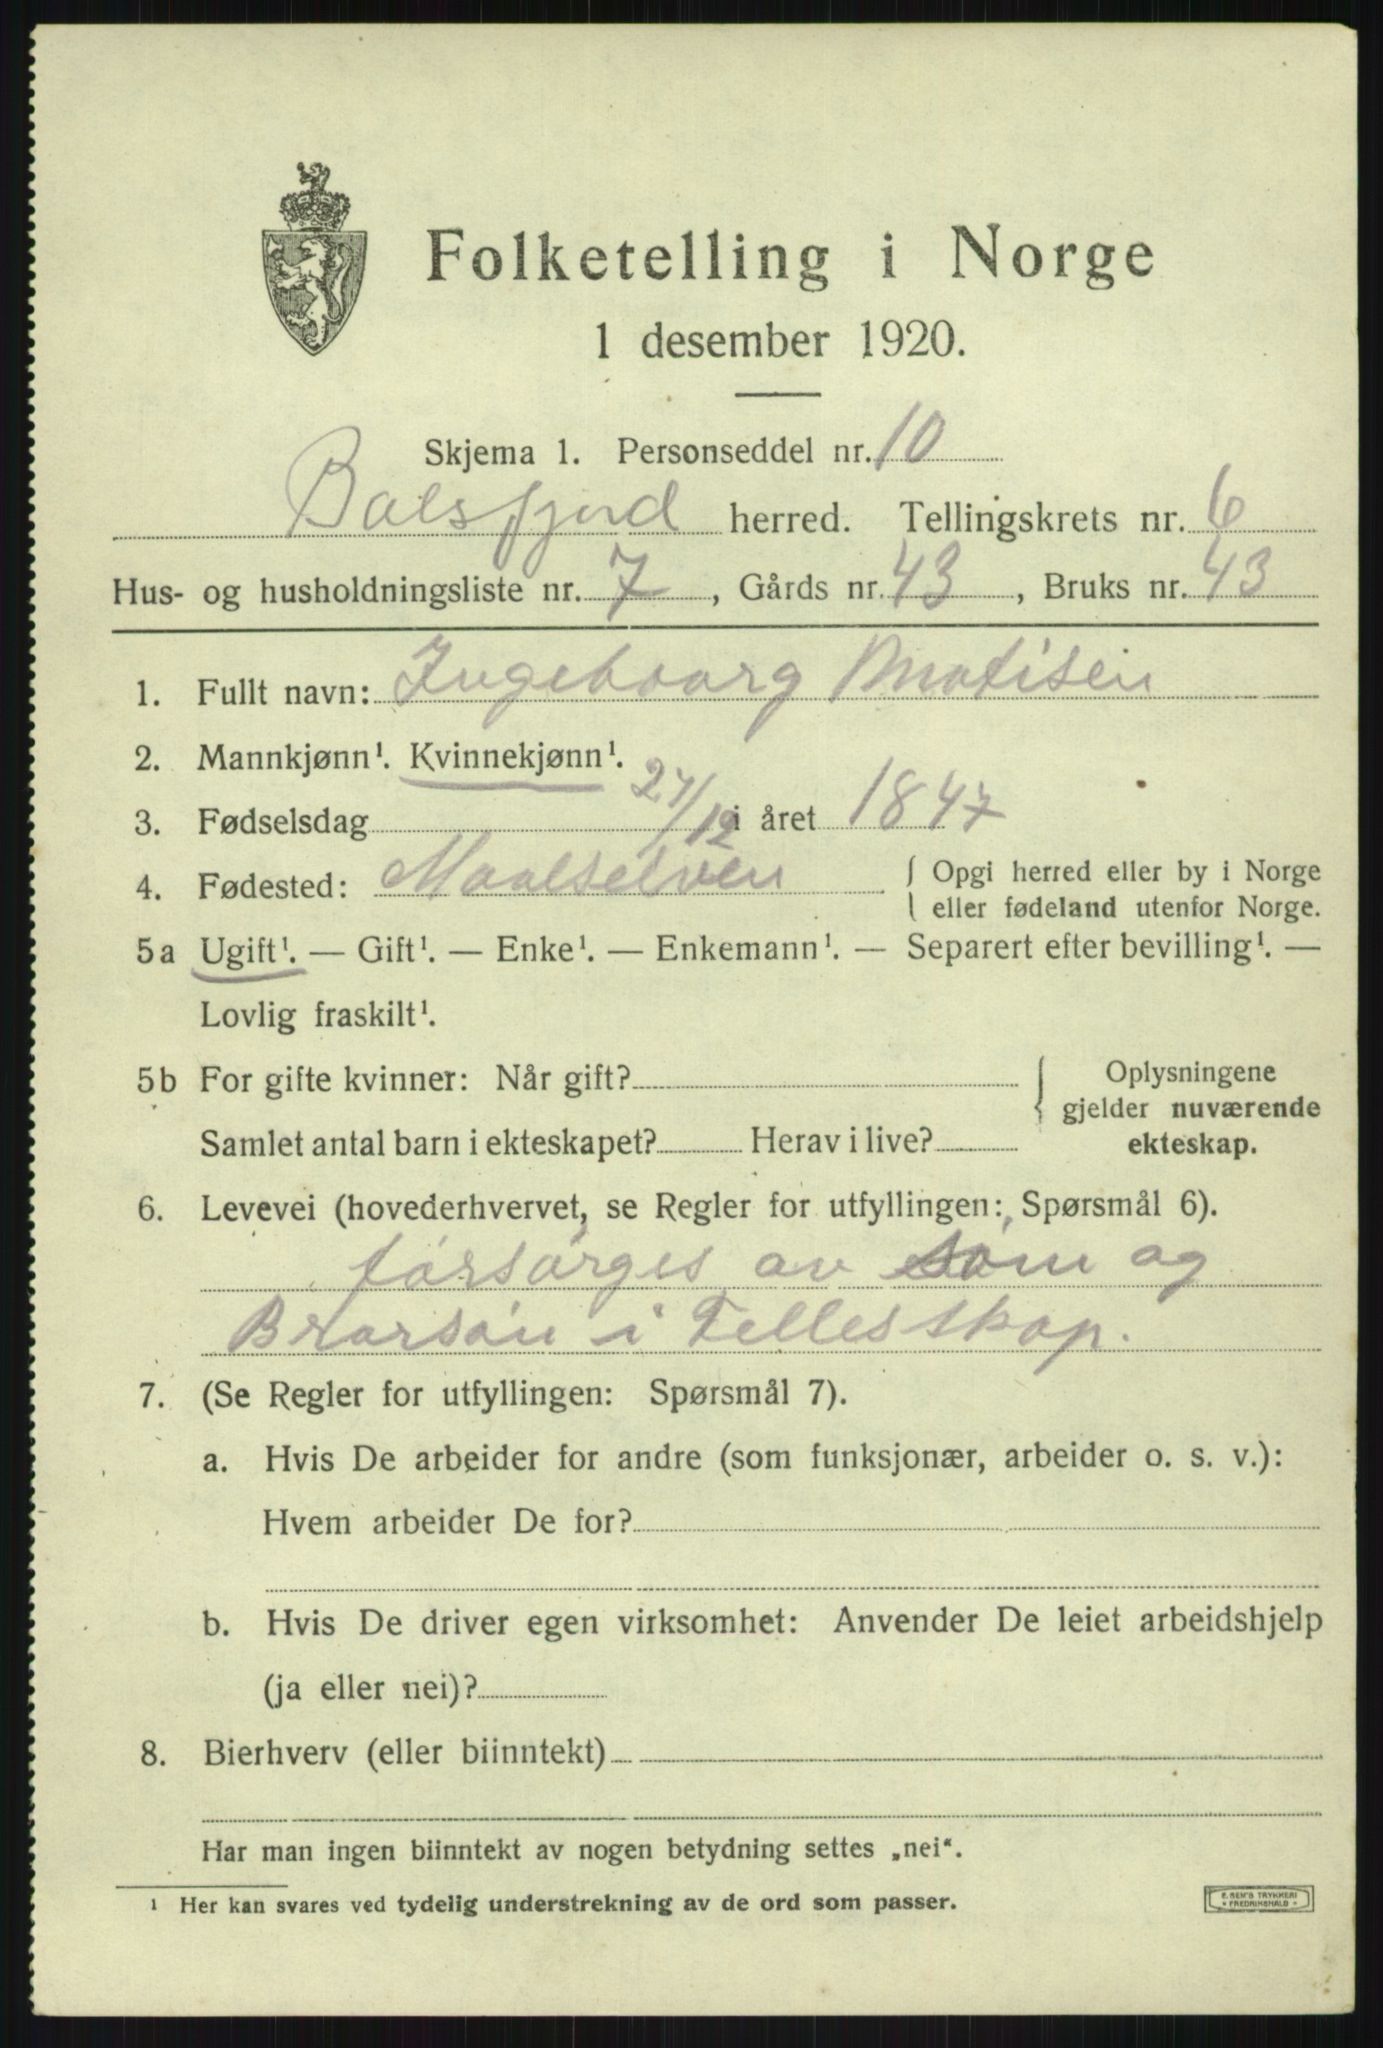 Folketelling i Norge
1 desember 1920.
Skjema 1. Personseddel nr. 10
Balsfjord herred. Tellingskrets nr. 6
Hus- og husholdningsliste nr. 7, Gårds nr. 43, Bruks nr. 43
1. Fullt navn: Ingeboarg Matisen
2. Mannkjønn¹. Kvinnekjønn¹.
3. Fødselsdag 27/12 i året 1847
4. Fødested: Maalselven { Opgi herred eller by i Norge
eller fødeland utenfor Norge.
5a Ugift¹. — Gift¹. — Enke¹. — Enkemann¹. — Separert efter bevilling¹. —
Lovlig fraskilt¹.
5b For gifte kvinner: Når gift? { Oplysningene
gjelder nuværende
Samlet antal barn i ekteskapet? Herav i live? ekteskap.
6. Levevei (hovederhvervet, se Regler for utfyllingen: Spørsmål 6).
forsørges av søn og
Brorsøn i Fellesskap.
7. (Se Regler for utfyllingen: Spørsmål 7).
a. Hvis De arbeider for andre (som funksjonær, arbeider o. s. v.):
Hvem arbeider De for?
b. Hvis De driver egen virksomhet: Anvender De leiet arbeidshjelp
(ja eller nei)?
8. Bierhverv (eller biinntekt)
Har man ingen biinntekt av nogen betydning settes „nei“.
¹ Her kan svares ved tydelig understrekning av de ord som passer.
E. SEM'S TRYKKERI
FREDRIKSHALD